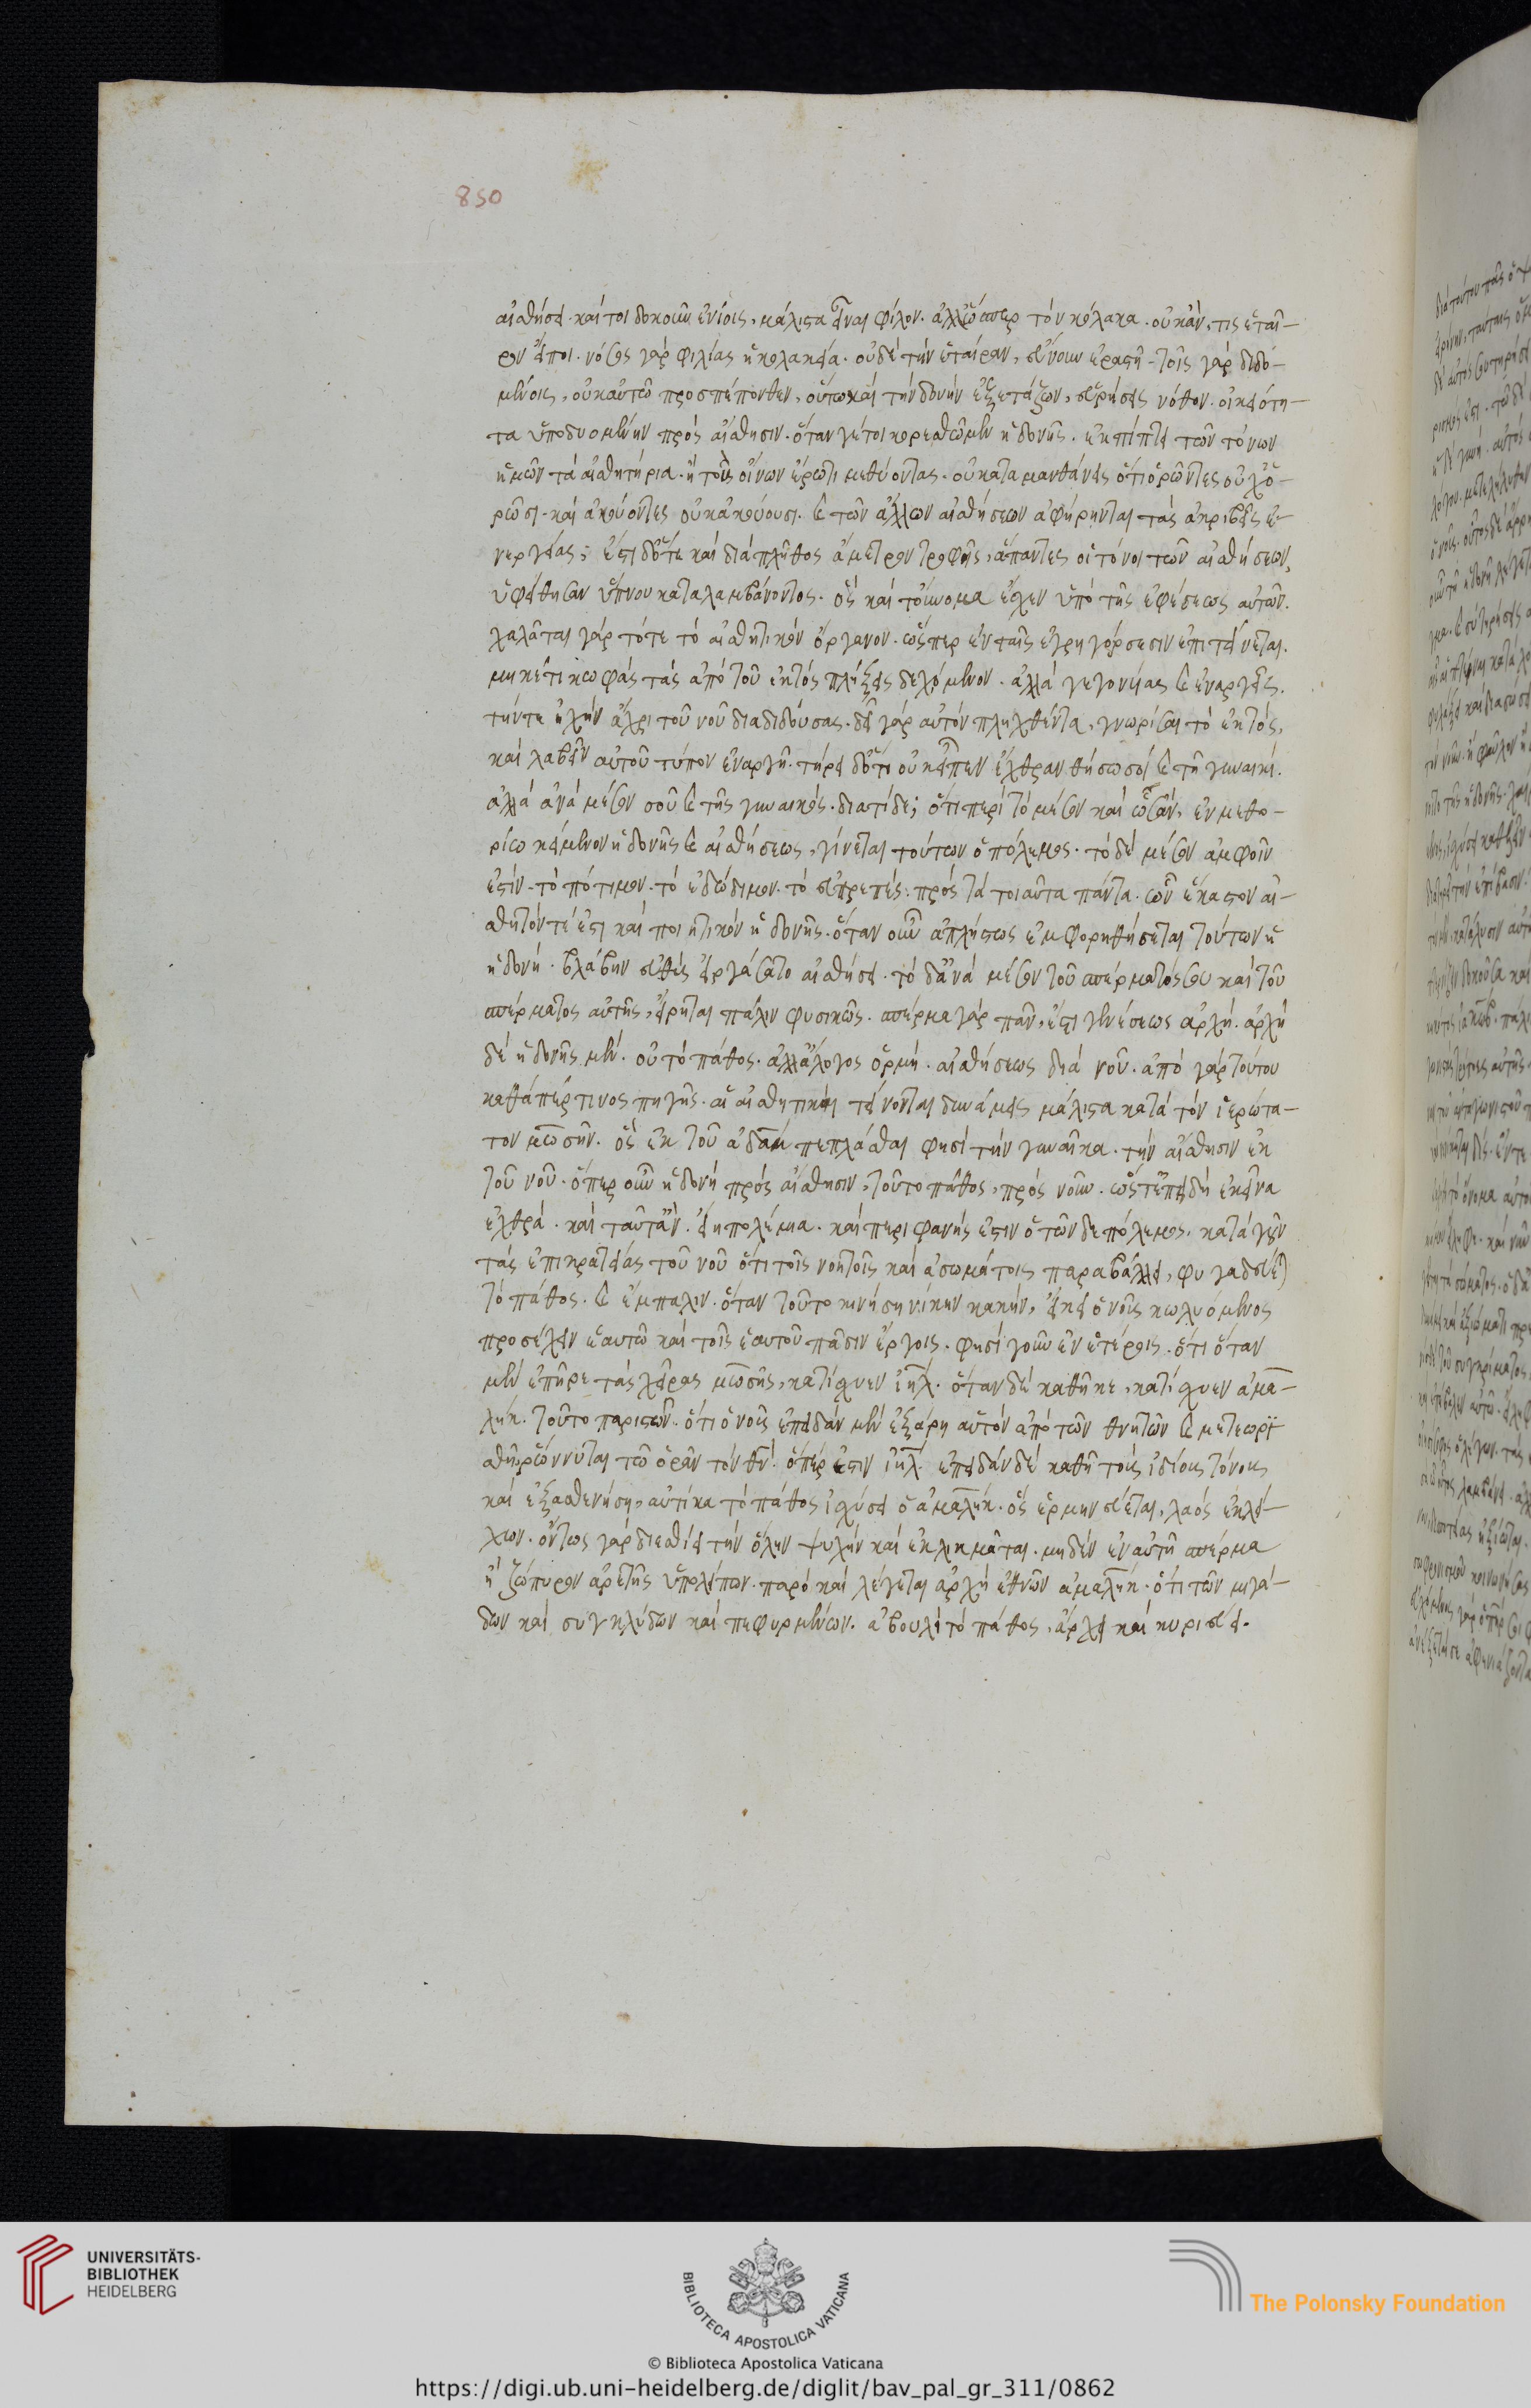 850
αἰσθήσει. καίτοι δοκοῦν ἐνίοις, μάλιστα εἶναι φίλον. ἀλλ' ὥσπερ τὸν κόλακα. οὐκ ἄν, τις ἑταῖ-
ρον εἴποι. νόσος γὰρ φιλίας ἡ κολακεία. οὐδὲ τὴν ἑταίραν, εὔνουν ἐραστῇ. τοῖς γὰρ διδο-
μένοις, οὐκ αὐτῶ προσπέπονθεν, οὕτω καὶ τὴν δονὴν ἐξετάζων, εὑρήσεις νόθον. οἰκειότη-
τα ὑποδυομένην πρὸς αἴσθησιν. ὅταν γέτοι κορεσθῶμεν ἡδονῆς. ἐκπίπτει τῶν τόνων
ἡμῶν τὰ αἰσθητήρια. ἢ τοὺς οἴνων ἔρωτι μεθύοντας. οὐ καταμανθάνεις ὅτι ὁρῶντες οὐχ ὁ-
ρῶσι. καὶ ἀκούοντες οὐκ ἀκούουσι. καὶ τῶν ἄλλων αἰσθήσεων ἀφήρηνται τὰς ἀκριβεῖς ἐ-
νεργείας; ἔστι δ' ὅτε καὶ διὰ πλῆθος ἄμετρον τροφῆς, ἅπαντες οἱ τόνοι τῶν αἰσθήσεων,
ὑφείθησαν ὕπνου καταλαμβάνοντος. ὃς καὶ τοὔνομα ἔσχεν ὑπὸ τῆς ἐφέσεως αὐτῶν.
χαλᾶται γὰρ τότε τὸ αἰσθητικὸν ὄργανον. ὥσπερ ἐν ταῖς ἐγρηγόρσεσιν ἐπιτείνεται.
μηκέτι κωφὰς τὰς ἀπὸ τοῦ ἐκτὸς πλήξεις δεχόμενον. ἀλλὰ γεγονυίας καὶ ἐναργεῖς.
τήντε ἠχὴν ἄχρι τοῦ νοῦ διαδιδούσας. δεῖ γὰρ αὐτὸν πληχθέντα, γνωρίσαι τὸ ἐκτός,
καὶ λαβεῖν αὐτοῦ τύπον ἐναργῆ. τήρει δ' ὅτι οὐκ εἶπεν ἔχθραν θήσω σοὶ καὶ τῇ γυναικί.
ἀλλὰ ἀνὰ μέσον σοῦ καὶ τῆς γυναικός. διατίδε; ὅτι περὶ τὸ μέσον καὶ ὡσὰν, ἐν μεθο-
ρίω κείμενον ἡδονῆς καὶ αἰσθήσεως, γίνεται τούτων ὁ πόλεμος. τὸ δὲ μέσον ἀμφοῖν
ἐστίν. τὸ πότιμον. τὸ ἐδώδιμον. τὸ εὐπρεπές. πρὸς τὰ τοιαῦτα πάντα. ὧν ἕκαστον αἰ-
σθητόντέ ἐστι καὶ ποιητικὸν ἡδονῆς. ὅταν οὖν ἀπλήστως ἐμφορηθήσεται τούτων ἡ
ἡδονή. βλάβην εὐθὺς εἰργάσατο αἰσθήσει. τὸ δ' ἀνὰ μέσον τοῦ σπέρματός σου καὶ τοῦ
σπέρματος αὐτῆς, εἴρηται πάλιν φυσικῶς. σπέρμα γὰρ πᾶν, ἔστι γενέσεως ἀρχή. ἀρχὴ
δὲ ἡδονῆς μὲν. οὐ τὸ πάθος. ἀλλ' ἄλογος ὁρμή. αἰσθήσεως δὲ ὁ νοῦς. ἀπὸ γὰρ τούτου
καθάπέρ τινος πηγῆς. αἱ αἰσθητικαὶ τείνονται δυνάμεις μάλιστα κατὰ τὸν ἱερώτα-
τον μωσῆν. ὃς ἐκ τοῦ ἀδὰμ πεπλάσθαι φησὶ τὴν γυναῖκα. τὴν αἴσθησιν ἐκ
τοῦ νοῦ. ὅπερ οὖν ἡδονὴ πρὸς αἴσθησιν, τοῦτο πάθος, πρὸς νοῦν. ὥστ' ἐπειδὴ ἐκεῖνα
ἐχθρά. καὶ ταῦτ' ἄν. εἴη πολέμια. καὶ περιφανής ἐστιν ὁ τῶνδε πόλεμος. κατὰ γοῦν
τὰς ἐπικρατείας τοῦ νοῦ ὅτι τοῖς νοητοῖς καὶ ἀσωμάτοις παραβάλλει, φυγαδεύεται
τὸ πάθος. καὶ ἔμπαλιν. ὅταν τοῦτο κινήσῃ νίκην κακήν, εἴκει ὁ νοῦς κωλυόμενος
προσέχειν ἑαυτῶ καὶ τοῖς ἑαυτοῦ πᾶσιν ἔργοις. φησὶ γοῦν ἐν ἑτέροις. ὅτι ὅταν
μὲν ἐπῆρε τὰς χεῖρας μωσῆς, κατίσχυεν ἰηλ. ὅταν δὲ καθῆκε, κατίσχυεν ἀμα-
λήκ. τοῦτο παριστῶν. ὅτι ὁ νοῦς ἐπειδὰν μὲν ἐξάρῃ αὑτὸν ἀπὸ τῶν θνητῶν καὶ μετεωρι-
σθῇ, ῥώννυται τὸ ὁρῶν τὸν θν. ὅπέρ ἐστιν ἰηλ. ἐπειδὰν δὲ καθῇ τοὺς ἰδίους τόνους
καὶ ἐξασθενήσῃ, αὐτίκα τὸ πάθος ἰσχύσει ὁ ἀμαλήκ. ὃς ἑρμηνεύεται, λαὸς ἐκλεί-
χων. ὄντως γὰρ διεσθίει τὴν ὅλην ψυχὴν καὶ ἐκλιχμᾶται. μηδὲν ἐν αὐτῇ σπέρμα
ἢ ζώπυρον ἀρετῆς ὑπολείπων. παρὸ καὶ λέγεται ἀρχὴ ἐθνῶν ἀμαλήκ. ὅτι τῶν μιγά-
δων καὶ συγκλύδων καὶ πεφυρμένων. ἀβουλεὶ τὸ πάθος, ἄρχει καὶ κυριεύει.
UNIVERSITÄTS-
BIBLIOTHEK
HEIDELBERG
BIBLIOTECA APOSTOLICA VATICANA
The Polonsky Foundation
© Biblioteca Apostolica Vaticana
https://digi.ub.uni-heidelberg.de/diglit/bav_pal_gr_311/0862